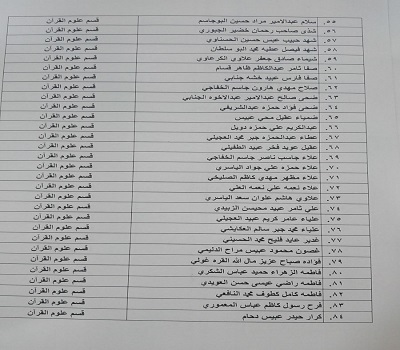 ٥٥. سلام عبدالامير مراد حسين البوجاسم قسم علوم القرآن
٥٦. شذى صاحب رحمان خضير الجبوري قسم علوم القرآن
٥٧. شهد حبيب عيس حسين الحسناوي قسم علوم القرآن
٥٨. شهد فيصل عطيه محمد البو سلطان قسم علوم القرآن
٥٩. شيماء صادق جعفر علاوي الكرعاوي قسم علوم القرآن
٦٠. صفا ثامر عبدالكاظم ظاهر قسام قسم علوم القرآن
٦١. صفا فارس عبيد خشه جنابي قسم علوم القرآن
٦٢. صلاح مهدي هارون جاسم الخفاجي قسم علوم القرآن
٦٣. ضحى صالح عبدالامير عبدالاخوه الجنابي قسم علوم القرآن
٦٤. ضحى فؤاد حمزه عبدالشريفي قسم علوم القرآن
٦٥. ضمياء عقيل محي عبيس قسم علوم القرآن
٦٦. عبدالكريم علي حمزه دويل قسم علوم القرآن
٦٧. عطاء عبدالحمزه جبر محمد العجيلي قسم علوم القرآن
٦٨. عقيل عويد فخر عبيد الطفيلي قسم علوم القرآن
٦٩. علاء جاسب ناصر جاسم الخفاجي قسم علوم القرآن
٧٠. علاء حمزه علي جواد الياسري قسم علوم القرآن
٧١. علاء مظهر مهدي كاظم الصليخي قسم علوم القرآن
٧٢. علاء نعمه علي نعمه العلي قسم علوم القرآن
٧٣. علاوي هاشم علوان سعد الياسري قسم علوم القرآن
٧٤. علي ثامر عبيد محيسن الزبيدي قسم علوم القرآن
٧٥. علياء عامر كريم عبيد العجيلي قسم علوم القرآن
٧٦. علياء محمد جبر سالم العكايشي قسم علوم القرآن
٧٧. غدير عايد فليح محمد الحسيني قسم علوم القرآن
٧٨. غصون محمود عبيس مراح الدليمي قسم علوم القرآن
٧٩. فؤاده صباح عزيز مال الله القره غولي قسم علوم القرآن
٨٠. فاطمه الزهراء حميد عباس الشكري قسم علوم القرآن
٨١. فاطمه راضي عيسى حسن العويدي قسم علوم القرآن
٨٢. فاطمه كامل كطوف محمد النافعي قسم علوم القرآن
٨٣. فرح رسول كاظم عباس المعموري قسم علوم القرآن
٨٤. كرار حيدر عبيس دحام قسم علوم القرآن